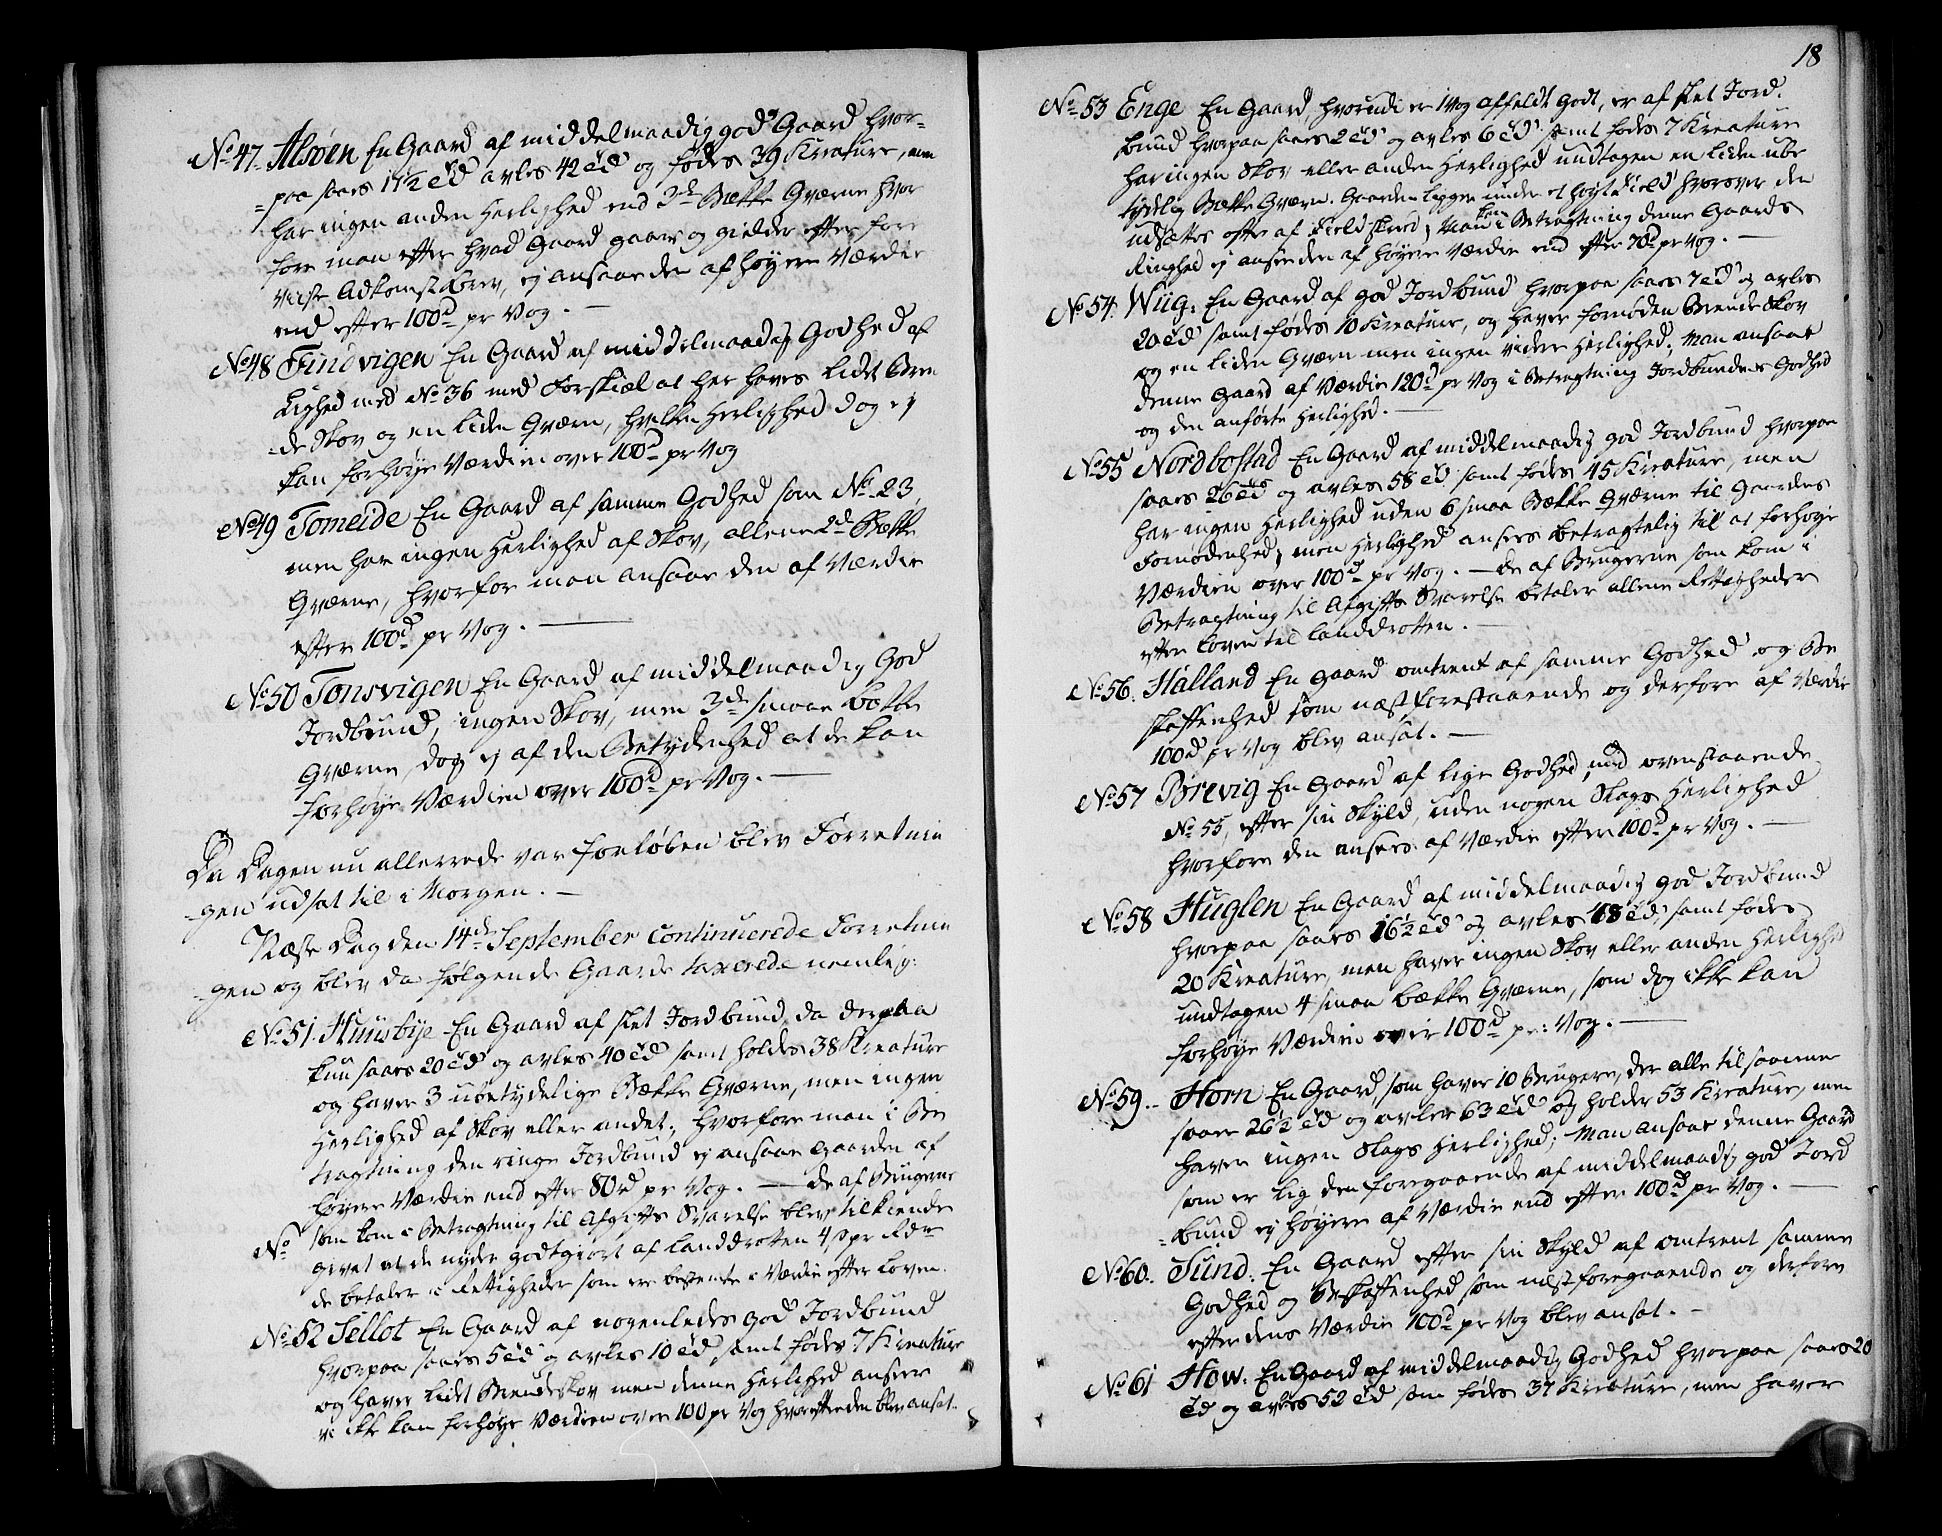 No 47. Alsøen En Gaard af middelmaadig god Gaard hvor-
-paa saaes 17½ Td avles 42 Td og fødes 39 Kreature, men
har ingen anden Herlighed end 2de Bække Qværne hvor
fore man efter hvad Gaard gaaer og gielder efter fore
viiste Adkomstbrev, ej ansaae den af høyere Værdie
end efter 100d pr Vog. —
No 48 Findvigen En Gaard af middelmaadig Godhed af
Lighed med No 36 med Forskiæl at her haves lidt Bren
-de Skov og en liden Qværn, hvilken Herlighed dog ej
kan forhøye Værdien over 100d pr Vog
No 49 Tomeide En Gaard af samme Godhed som No 23,
men har ingen Herlighed af Skov, allene 2de Bække
Qværne, hvorfore man ansaae den af Værdie
efter 100d pr Vog. —
No 50 Tonsvigen En Gaard af middelmaadig God
Jordbund, ingen Skov, men 3de smaae Bække
Qværne, dog ej af den Betydenhed at de kan
forhøye Værdien over 100d pr Vog. —
Da Dagen nu allerrede var forløben blev Forretnin
-gen udsat til i Morgen. —
Næste Dag den 14de September continuerede Forretnin
-gen og blev da følgende Gaarde taxerede nemlig:
No 51. Huusbye En Gaard af slet Jordbund da derpaa
kun saaes 20 Td og avles 40 Td samt holdes 38 Kreature
og haver 3 ubetydelige Bække Qværne, men ingen
Herlighed af Skov eller andet; hvorfore man i Be
tragtning den ringe Jordbund ej ansaae Gaarden af
høyere Værdie end efter 80d pr Vog. — De af Brugerne
No som kom i Betragtning til Afgifts Svarelse blev tilkiende
givet at de nyder godtgiort af Landdrotten 4 s pr Rdr
de betaler i Rettigheder som ere bestemte i Værdie efter Loven.
No 52 Sellot En Gaard af nogenledes god Jordbund
hvorpaa saaes 5 Td og avles 10 Td, samt fødes 7 Kreature
og haver lidt Brendeskov men denne Herlighed ansees
ikke kan forhøye Værdien over 100 pr Vog hvorefter den blev ansat.
18
No 53 Enge En Gaard, hvorudi er 1 Vog affeldt Godt, er af slet Jord-
bund hvorpaa saaes 2 Td og avles 6 Td, samt fødes 7 Kreature
har ingen Skov eller anden Herlighed undtagen en liden ube
tydelig Bække Qværn. Gaarden ligger under et høyt Field hvorover den
udsættes ofte af Field Skreed; Man kan i Betragtning denne Gaards
Ringhed ej ansee den af høyere Værdie end efter 70d pr Vog. —
No 54. Wiig. En Gaard af god Jordbund hvorpaa saaes 7 Td og avles
20 Td samt fødes 10 Kreature, og haver fornøden Brende Skov
og en liden Qværn men ingen videre Herlighed; Man ansaae
denne Gaard af Værdie 120d pr Vog i Betragtning Jordbundens Godhed
og den anførte Herlighed. —
No 55 Nordbostad En Gaard af middelmaadig god Jordbund hvorpaa
saaes 26 Td og avles 58 Td samt fødes 45 Kreature, men
har ingen Herlighed uden 6 smaa Bække Qværne til Gaardens
Fornødenhed; men Herlighed ansees betragtelig til at forhøye
Værdien over 100d pr Vog. — De af Brugerne som kom i
Betragtning til Afgifts Svarelse betaler allene Rettigheder
efter Loven til Landdrotten. —
No 56. Halland En Gaard omtrent af samme Godhed og Be
skaffenhed som næst forestaaende og derfore af Værdie
100d pr Vog blev ansat. —
No 57 Brevig En Gaard af lige Godhed med ovenstaaende
No 55, efter sin Skyld, uden nogen Slags Herlighed
hvorfore den ansees af Værdie efter 100d pr Vog. —
No 58 Huglen En Gaard af middelmaadig god Jordbund
hvorpaa saaes 16½ Td og avles 48 Td, samt fødes
20 Kreature, men haver ingen Skov eller anden Herlighed
undtagen 4 smaa Bække Qværne, som dog ikke kan
forhøye Værdien over 100d pr: Vog. —
No 59. Horn En Gaard, som haver 10 Brugere, der alle tilsamme
saaer 26½ Td og avler 63 Td og holder 53 Kreature, men
haver ingen Slags Herlighed; Man ansaae denne Gaard
som er lig den foregaaende af middelmaadig god Jord
-bund ej høyere af Værdie end efter 100d pr Vog. —
No 60. Sund. En Gaard efter sin Skyld af omtrent samme
Godhed og Beskaffenhed som næstforegaaende og derfore
efter dens Værdie 100d pr Vog blev ansat. —
No 61 How. En Gaard af middelmaadig Godhed hvorpaa saaes 20
Td og avles 52 Td som fødes 37 Kreature, men haver